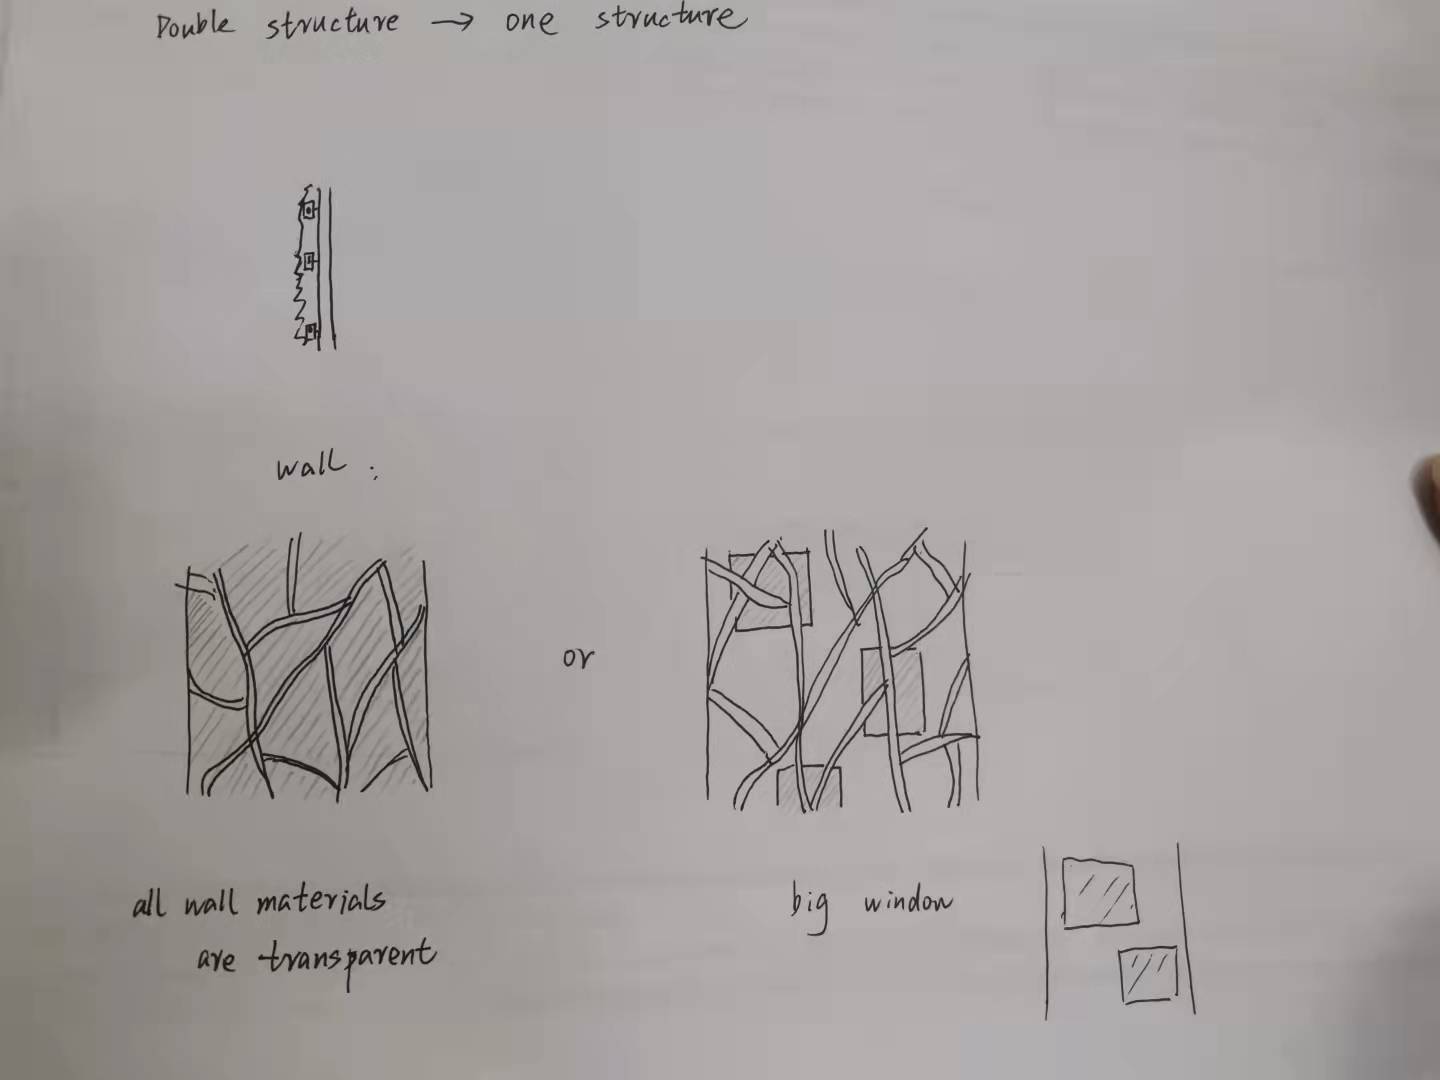 Double structure → one structure
wall :
or
all wall materials
are transparent
big window